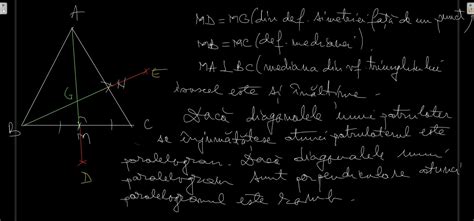 A
MD = MG (din def. simetriei față de un punct)
MB = MC (def. medianei)
MA ⊥ BC (mediana din vf triunghiului
isoscel este și înălțime.
Dacă diagonalele unui patrulater
se înjumătățesc atunci patrulaterul este
paralelogram. Dacă diagonalele unui
paralelogram sunt perpendiculare atunci
paralelogramul este romb.
N E
G
B M C
D